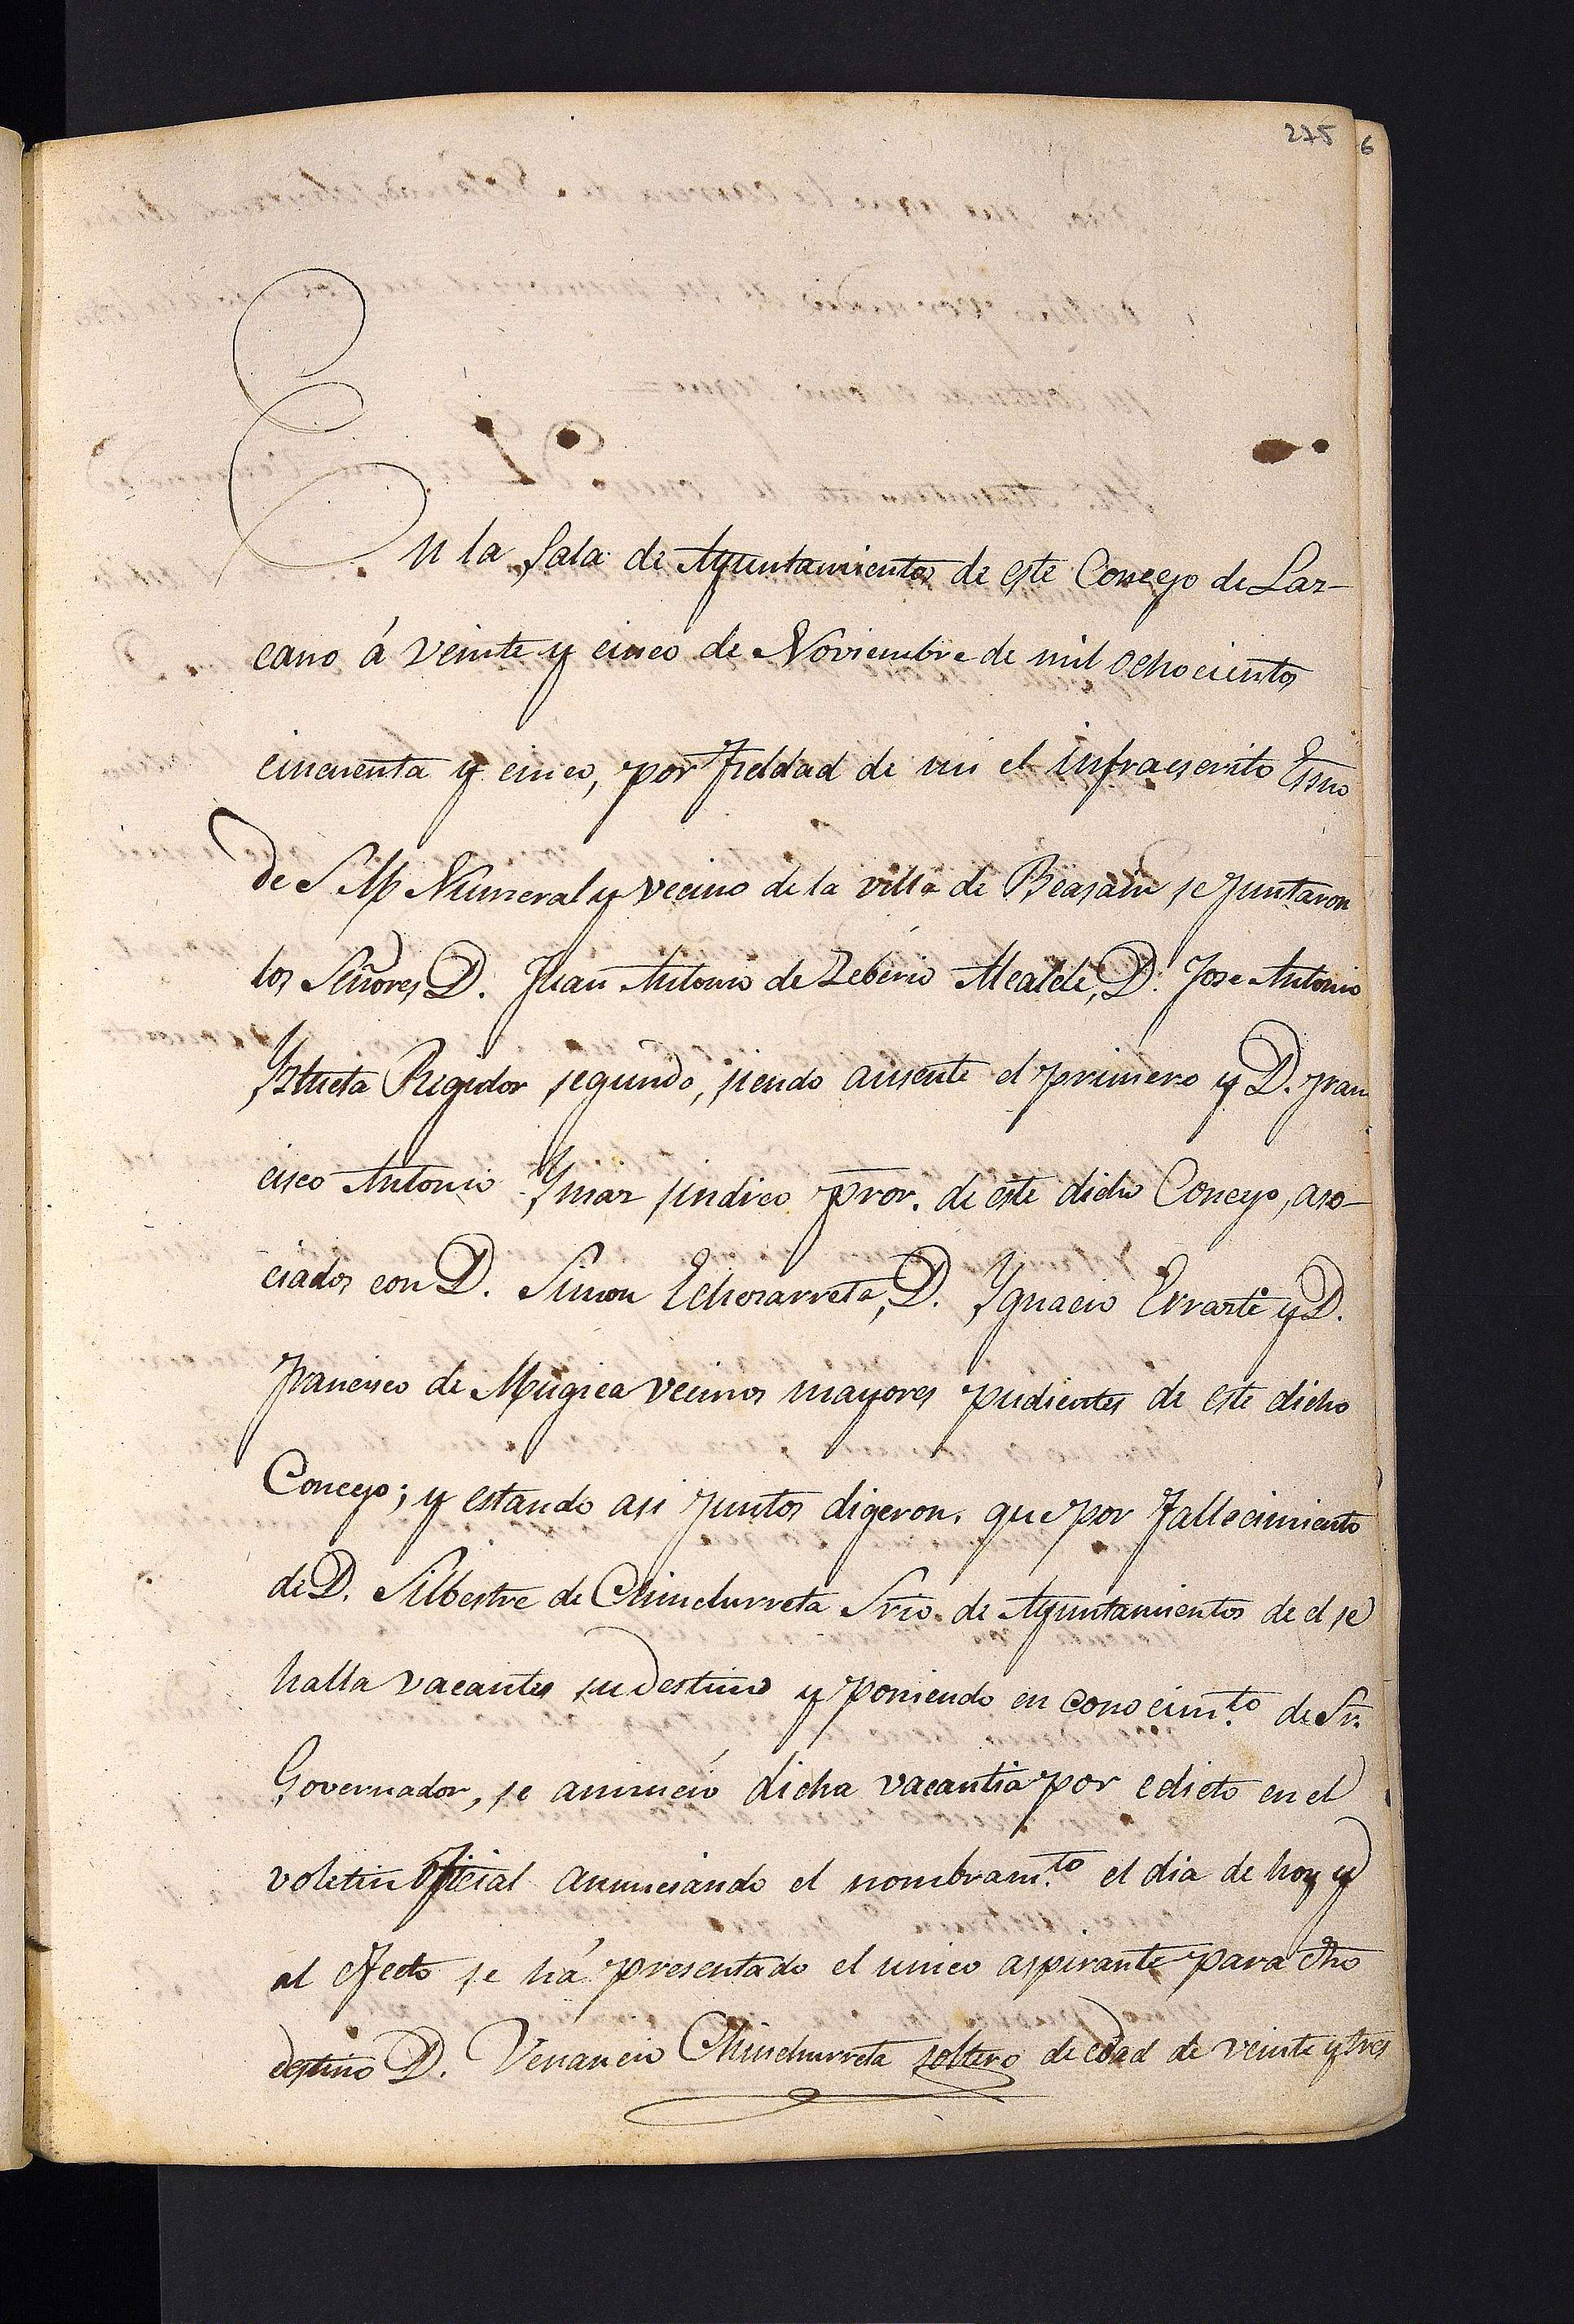 275 6
En la Sala de Ayuntamientos de este Concejo de Laz-
cano á veinte y cinco de Noviembre de mil ochocientos
cincuenta y cinco, por fieldad de mi el infraescrito Essno
de S M Numeral y vecino de la villa de Beasain se juntaron
los Señores D. Juan Antonio de Zeberio Alcalde, D. Jose Antonio
Yztueta Regidor segundo, siendo ausente el primero y D. Fran
cisco Antonio Ymaz sindico pror. de este dicho Concejo, aso-
ciados con D. Simon Echezarreta, D. Ygnacio Errarte y D.
Francisco de Mugica vecinos mayores pudientes de este dicho
Concejo; y estando asi juntos digeron, que por fallecimiento
de D. Silbestre de Chinchurreta Srio. de Ayuntamientos de el se
halla vacante su destino y poniendo en conocim.to de Sr.
Governador, se anunció dicha vacantia por edicto en el
voletin oficial anunciando el nombram.to el dia de hoy y
al efecto se há presentado el unico aspirante para dho
destino D. Venancio Chinchurreta soltero de edad de veinte y tres